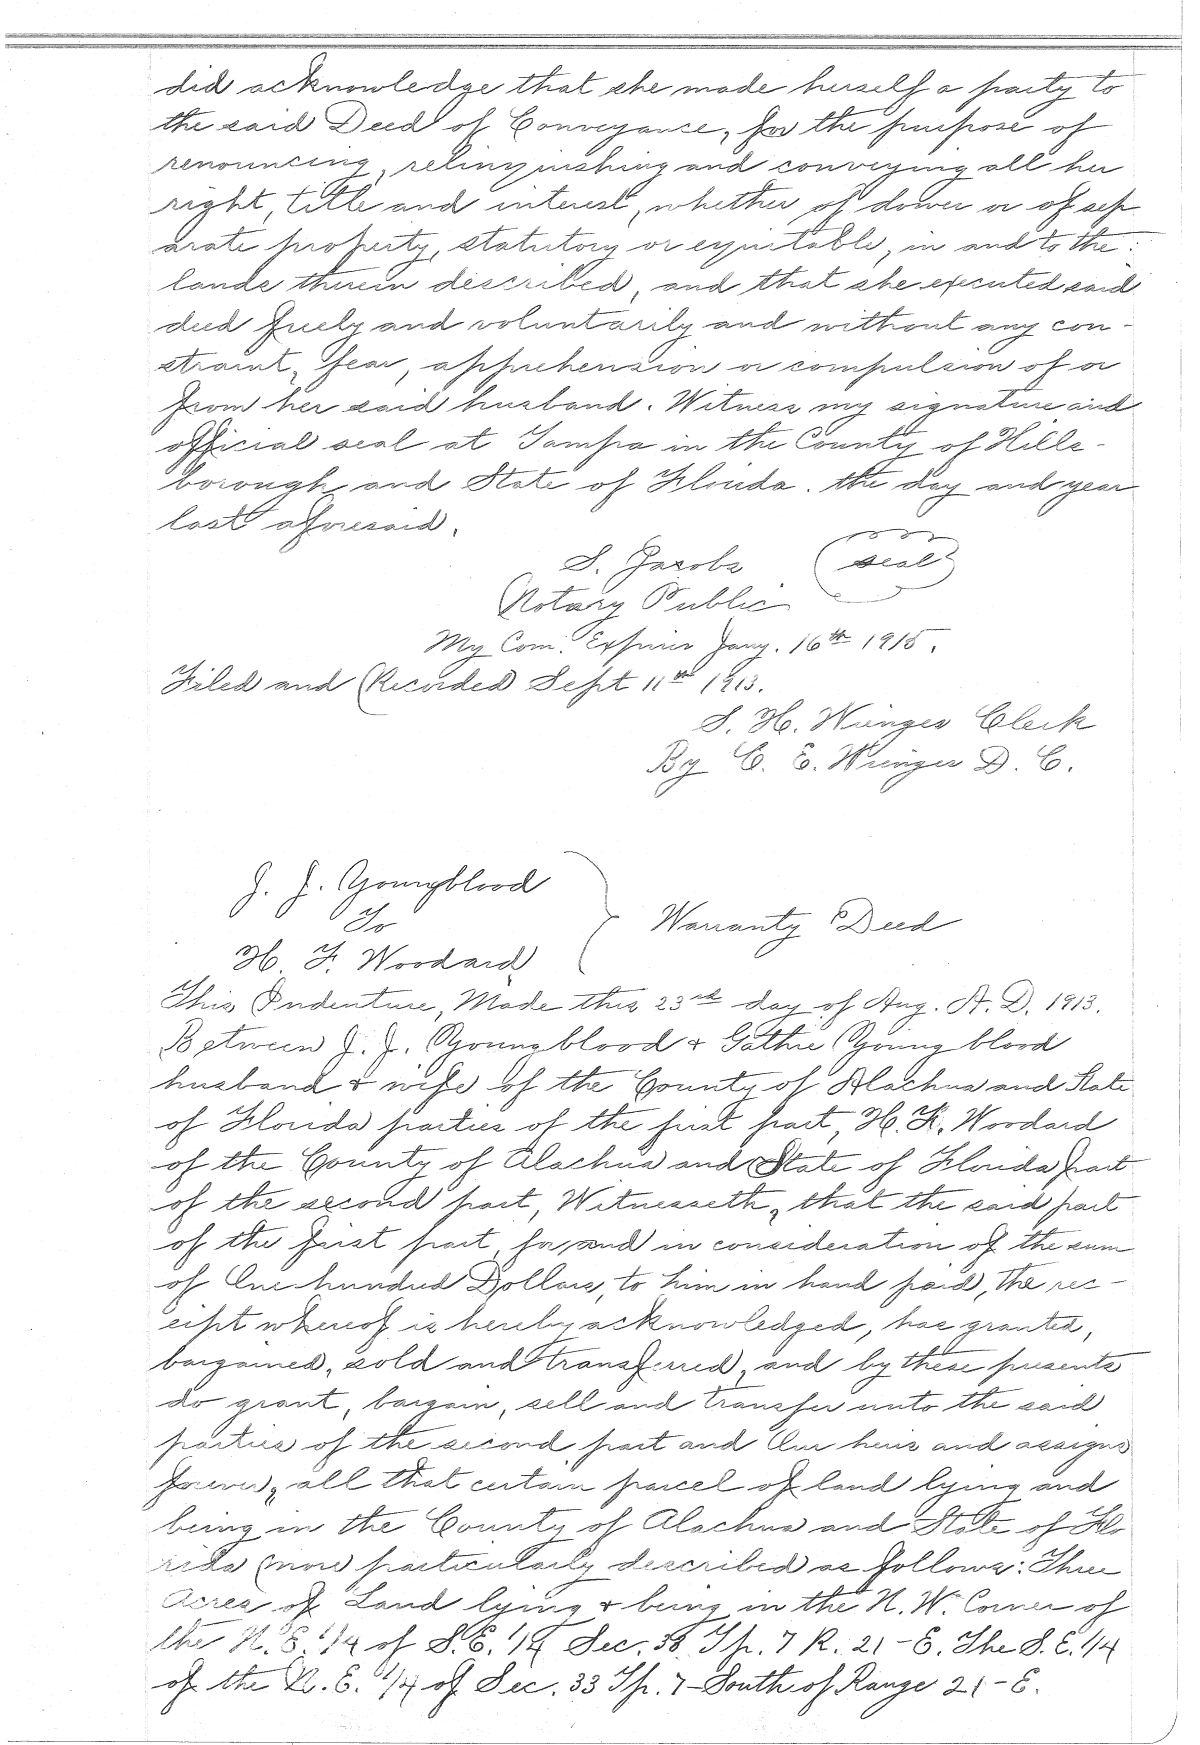 did acknowledge that she made herself a party to
the said Deed of Conveyance, for the purpose of
renouncing, relinquishing and conveying all her
right, title and interest, whether of dower or of sep
arate property, statutory or equitable, in and to the
lands therein described, and that she executed said
deed freely and voluntarily and without any con-
straint, fear, apprehension or compulsion of or
from her said husband. Witness my signature and
official seal at Tampa in the County of Hills-
borough and State of Florida. the day and year
last aforesaid.
S. Jacobs (seal)
Notary Public
My Com. Expires Jany. 16th 1915.
Filed and Recorded Sept 11th 1913.
S. H. Wienges Clerk
By C. E. Wienges D. C.
J. J. Youngblood
To
Warranty Deed
H. F. Woodard
This Indenture, Made this 23rd day of Aug. A. D. 1913.
Between J. J. Youngblood & Gathie Youngblood
husband & wife of the County of Alachua and State
of Florida parties of the first part, H. F. Woodard
of the County of Alachua and State of Florida part
of the second part, Witnesseth, that the said part
of the first part, for and in consideration of the sum
of One hundred Dollars, to him in hand paid, the rec-
eipt whereof is hereby acknowledged, has granted,
bargained, sold and transferred, and by these presents
do grant, bargain, sell and transfer unto the said
parties of the second part and Our heirs and assigns
forever, all that certain parcel of land lying and
being in the County of Alachua and State of Flo
rida more particularly described as follows: Three
Acres of Land lying & being in the N. W. Corner of
the N. E. 1/4 of S. E. 1/4 Sec. 33 Tp. 7 R. 21-E. The S. E. 1/4
of the N. E. 1/4 of Sec. 33 Tp. 7-South of Range 21-E.